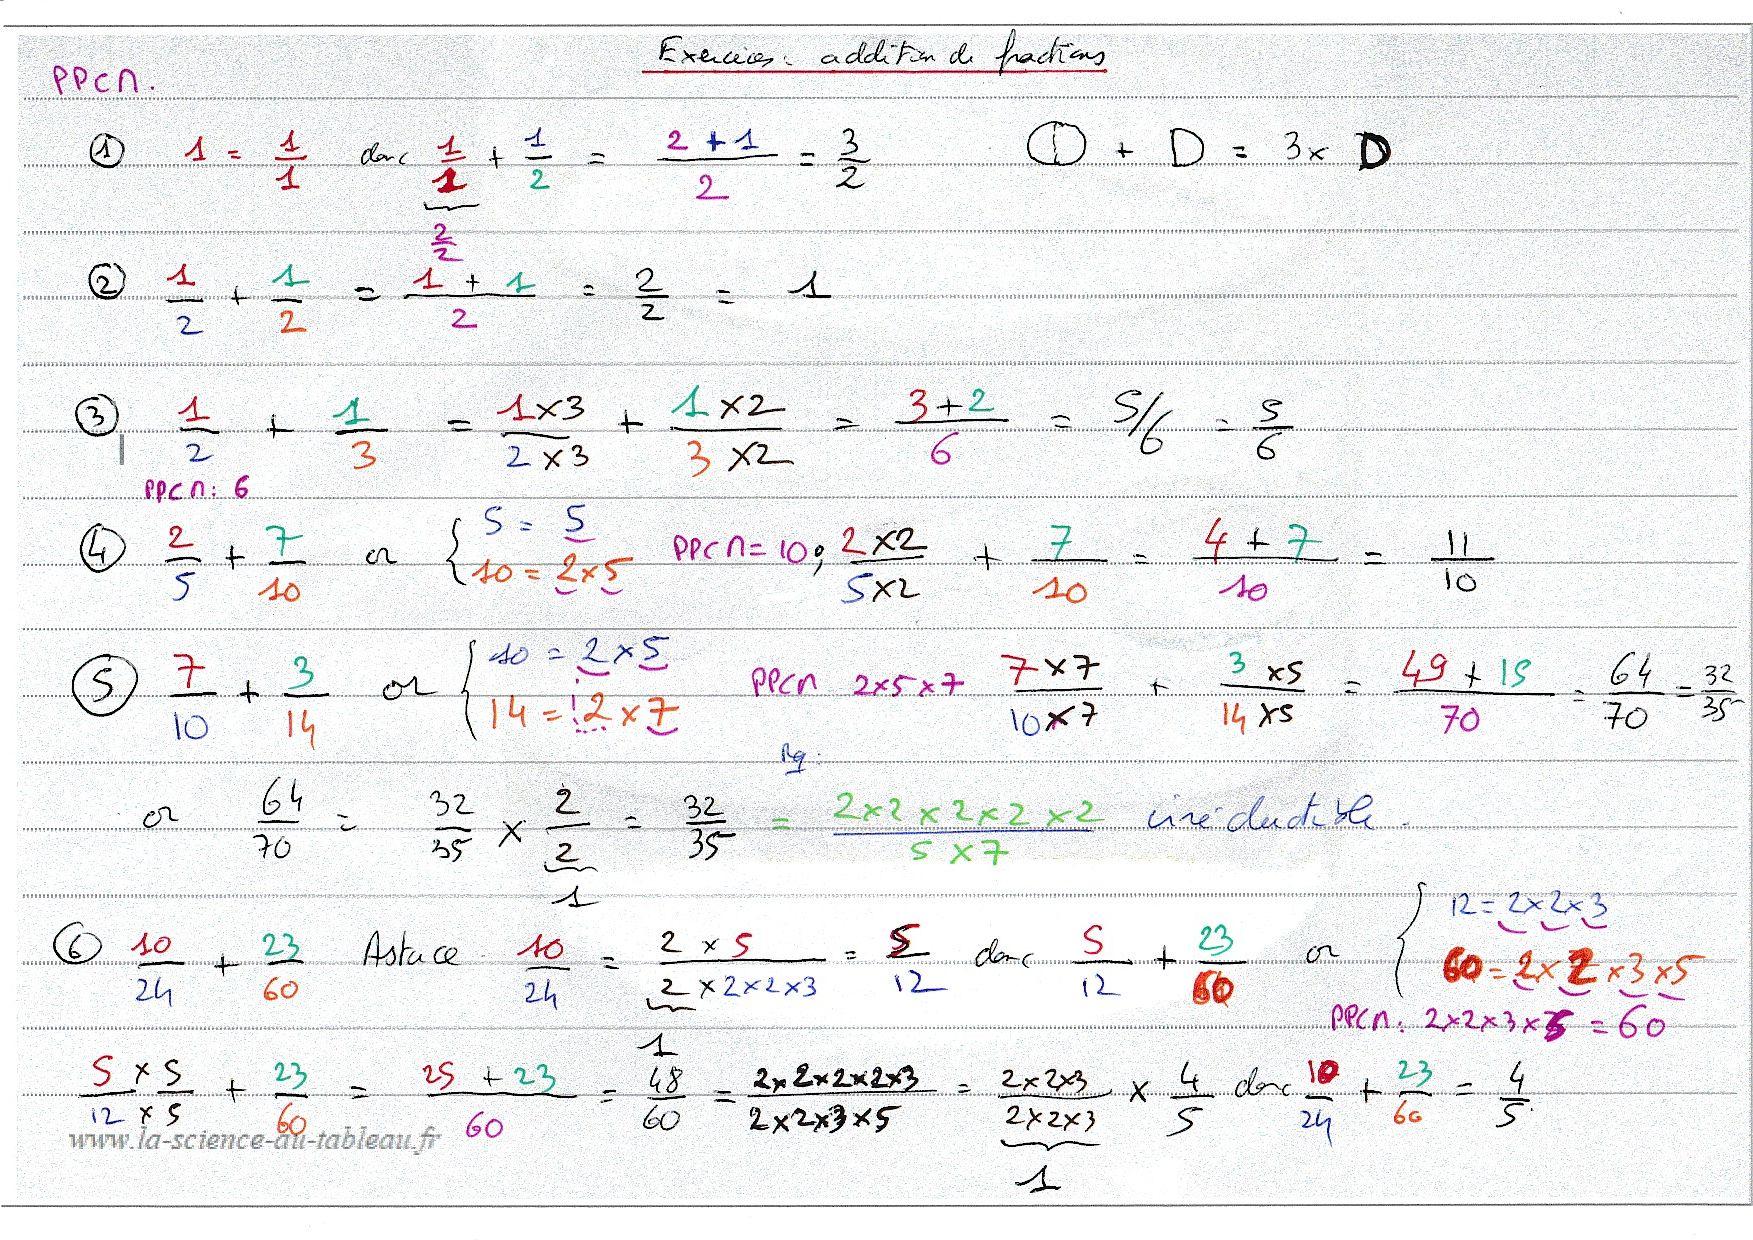 Exercices : addition de fractions
PPCM.
① 1 = 1/1 donc 1/1 + 1/2 = (2 + 1)/2 = 3/2 ① + D = 3 x D
2/2
② 1/2 + 1/2 = (1 + 1)/2 = 2/2 = 1
③ 1/2 + 1/3 = (1 x 3)/(2 x 3) + (1 x 2)/(3 x 2) = (3 + 2)/6 = 5/6 = 5/6
PPCM : 6
④ 2/5 + 7/10 or { 5 = 5
10 = 2 x 5 PPCM = 10 ; (2 x 2)/(5 x 2) + 7/10 = (4 + 7)/10 = 11/10
⑤ 7/10 + 3/14 or { 10 = 2 x 5
14 = 2 x 7 PPCM 2 x 5 x 7 (7 x 7)/(10 x 7) + (3 x 5)/(14 x 5) = (49 + 15)/70 = 64/70 = 32/35
Rq :
or 64/70 = 32/35 x 2/2 = 32/35 = (2 x 2 x 2 x 2 x 2)/(5 x 7) irréductible.
1
⑥ 10/24 + 23/60 Astuce 10/24 = (2 x 5)/(2 x 2 x 2 x 3) = 5/12 donc 5/12 + 23/60 or { 12 = 2 x 2 x 3
60 = 2 x 2 x 3 x 5
PPCM : 2 x 2 x 3 x 5 = 60
1
(5 x 5)/(12 x 5) + 23/60 = (25 + 23)/60 = 48/60 = (2 x 2 x 2 x 2 x 3)/(2 x 2 x 3 x 5) = (2 x 2 x 3)/(2 x 2 x 3) x 4/5 donc 10/24 + 23/60 = 4/5
1
www.la-science-au-tableau.fr